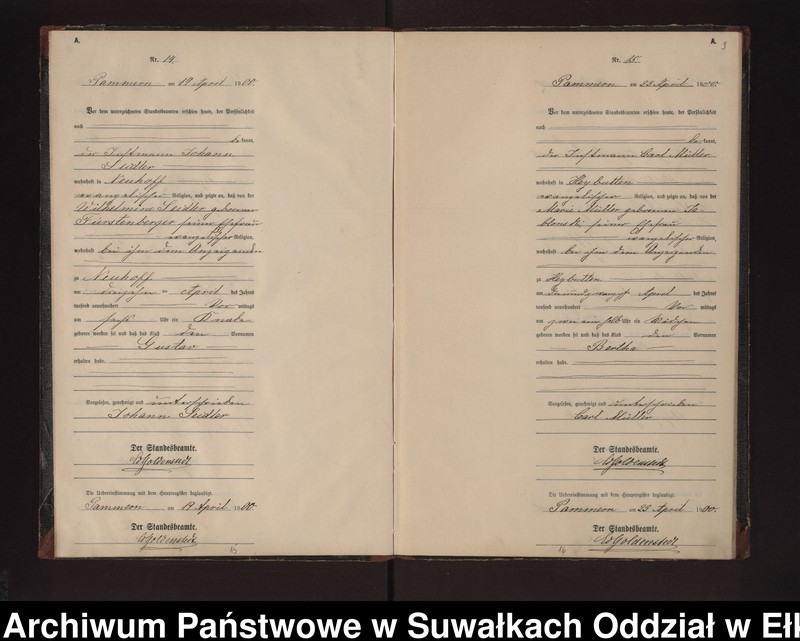 A.
Nr. 14.
Pammern am 19 April 1900.
Vor dem unterzeichneten Standesbeamten erschien heute, der Persönlichkeit
nach
be kannt,
der Instmann Johann
Seidler
wohnhaft in Neuhoff
evangelischer Religion, und zeigte an, daß von der
Wilhelmine Seidler geborenen
Fürstenberger seiner Ehefrau
evangelischer Religion,
wohnhaft bei ihm dem Anzeigenden
zu Neuhoff
am April des Jahres
tausend neunhundert Vor mittags
um sechs Uhr ein Knabe
geboren worden sei und daß das Kind den Vornamen
Gustav
erhalten habe.
Vorgelesen, genehmigt und unterschrieben
Johann Seidler
Der Standesbeamte.
Goldenstedt
Die Uebereinstimmung mit dem Hauptregister beglaubigt.
Pammern am 19 April 1900.
Der Standesbeamte.
Goldenstedt
15
A.
3
Nr. 15.
Pammern am 25 April 1900.
Vor dem unterzeichneten Standesbeamten erschien heute, der Persönlichkeit
nach
be kannt,
der Instmann Carl Müller
wohnhaft in Heybutten
evangelischer Religion, und zeigte an, daß von der
Marie Müller geborenen Ja-
blonski seiner Ehefrau
evangelischer Religion,
wohnhaft bei ihm dem Anzeigenden
zu Heybutten
am dreiundzwanzigst April des Jahres
tausend neunhundert Vor mittags
um zwei ein halb Uhr ein Mädchen
geboren worden sei und daß das Kind den Vornamen
Bertha
erhalten habe.
Vorgelesen, genehmigt und unterschrieben
Carl Müller
Der Standesbeamte.
Goldenstedt
Die Uebereinstimmung mit dem Hauptregister beglaubigt.
Pammern am 25 April 1900.
Der Standesbeamte.
Goldenstedt
16
Archiwum Państwowe w Suwałkach Oddział w Eł